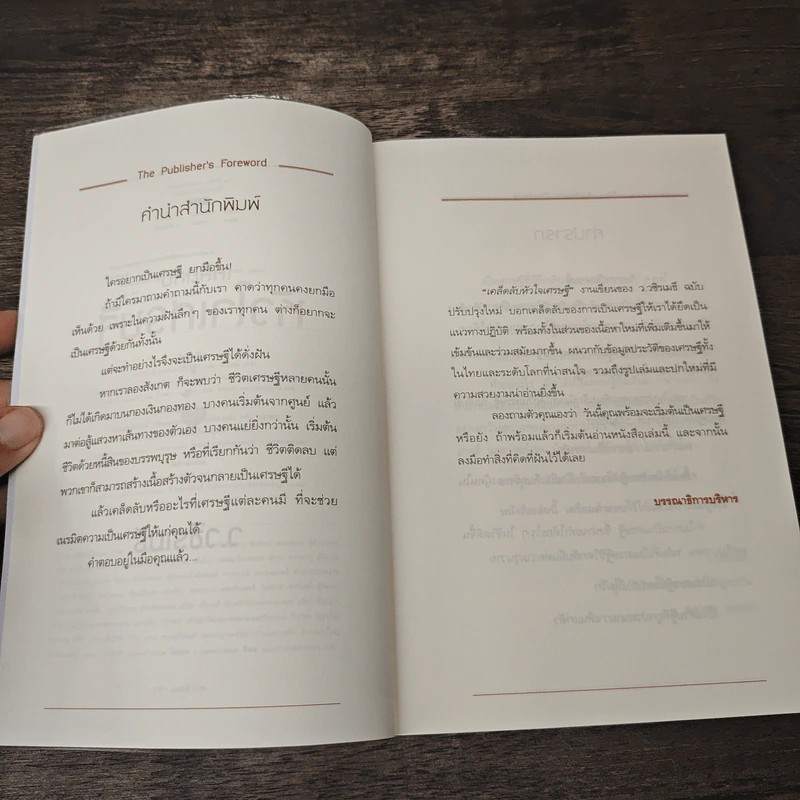 The Publisher's Foreword
คำนำสำนักพิมพ์
ใครอยากเป็นเศรษฐี ยกมือขึ้น!
ถ้ามีใครมาถามคำถามนี้กับเรา คาดว่าทุกคนคงยกมือ
เห็นด้วย เพราะในความฝันลึกๆ ของเราทุกคน ต่างก็อยากจะ
เป็นเศรษฐีด้วยกันทั้งนั้น
แต่จะทำอย่างไรจึงจะเป็นเศรษฐีได้ดังฝัน
หากเราลองสังเกต ก็จะพบว่า ชีวิตเศรษฐีหลายคนนั้น
ก็ไม่ได้เกิดมาบนกองเงินกองทอง บางคนเริ่มต้นจากศูนย์ แล้ว
มาต่อสู้แสวงหาเส้นทางของตัวเอง บางคนแย่ยิ่งกว่านั้น เริ่มต้น
ชีวิตด้วยหนี้สินของบรรพบุรุษ หรือที่เรียกกันว่า ชีวิตติดลบ แต่
พวกเขาก็สามารถสร้างเนื้อสร้างตัวจนกลายเป็นเศรษฐีได้
แล้วเคล็ดลับหรืออะไรที่เศรษฐีแต่ละคนมี ที่จะช่วย
เนรมิตความเป็นเศรษฐีให้แก่คุณได้
คำตอบอยู่ในมือคุณแล้ว...
"เคล็ดลับหัวใจเศรษฐี" งานเขียนของ ว.วชิรเมธี ฉบับ
ปรับปรุงใหม่ บอกเคล็ดลับของการเป็นเศรษฐีให้เราได้ยึดเป็น
แนวทางปฏิบัติ พร้อมทั้งในส่วนของเนื้อหาใหม่ที่เพิ่มเติมขึ้นมาให้
เข้มข้นและร่วมสมัยมากขึ้น ผนวกกับข้อมูลประวัติของเศรษฐีทั้ง
ในไทยและระดับโลกที่น่าสนใจ รวมถึงรูปเล่มและปกใหม่ที่มี
ความสวยงามน่าอ่านยิ่งขึ้น
ลองถามตัวคุณเองว่า วันนี้คุณพร้อมจะเริ่มต้นเป็นเศรษฐี
หรือยัง ถ้าพร้อมแล้วก็เริ่มต้นอ่านหนังสือเล่มนี้ และจากนั้น
ลงมือทำสิ่งที่คิดที่ฝันไว้ได้เลย
บรรณาธิการบริหาร